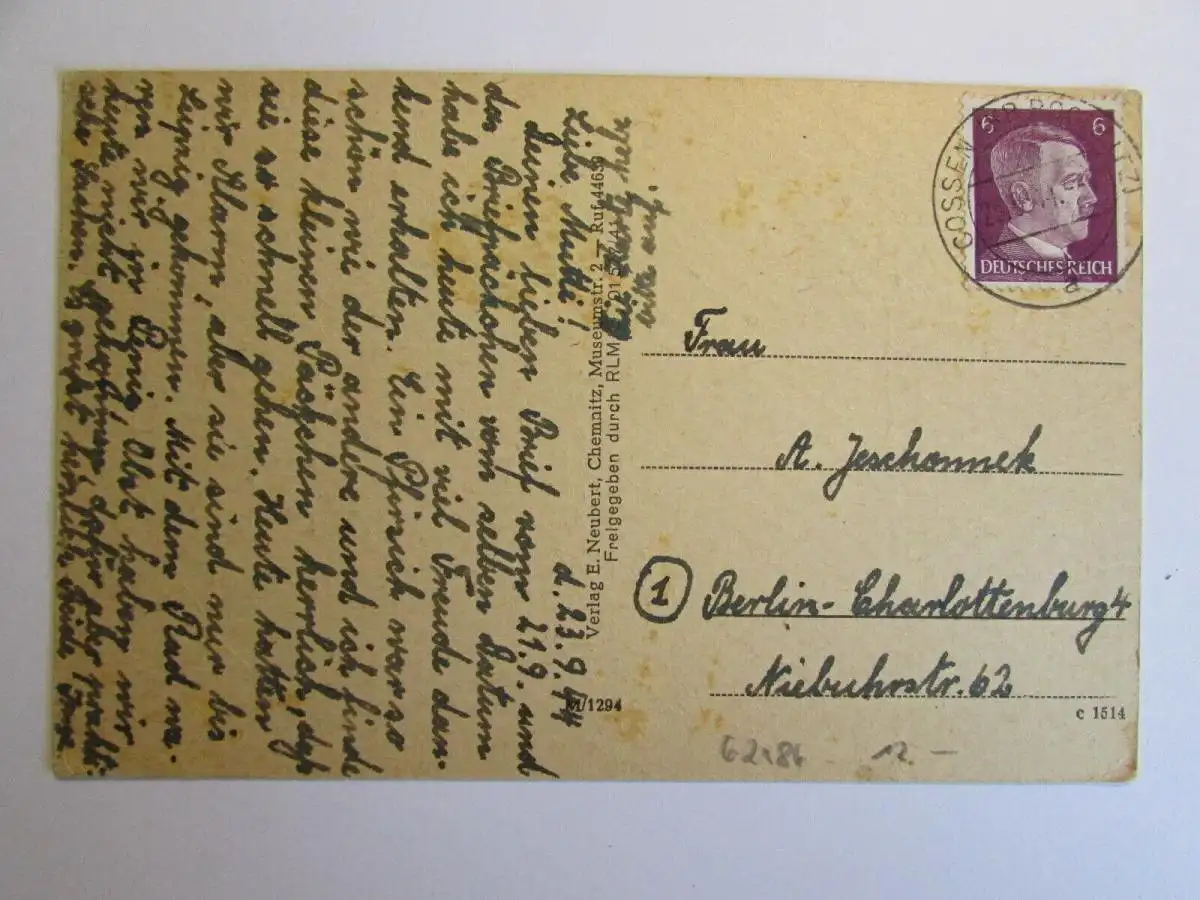 6 6
DEUTSCHES REICH
GOSSEN
a
Frau
A. Jeschonnek
1 Berlin-Charlottenburg 4
Niebuhrstr. 62
c 1514
62.86 12.-
Verlag E. Neubert, Chemnitz, Museumstr. 2 — Ruf 44639
Freigegeben durch RLM
M/1294
d. 23.9.44
Liebe Mutti!
Deinen lieben Brief vom 21.9. und
das Briefpäckchen vom selben Datum
habe ich heute mit viel Freude dan-
kend erhalten. Ein Pfirsich war so
schön wie der andere und ich finde
diese kleinen Päckchen herrlich, daß
sie so schnell gehen. Heute hatten
wir Alarm, aber sie sind nur bis
Leipzig gekommen. Mit dem Rad wa-
ren wir in Penig. Obst haben wir
heute nicht dafür aber
herzlich Deine Inge